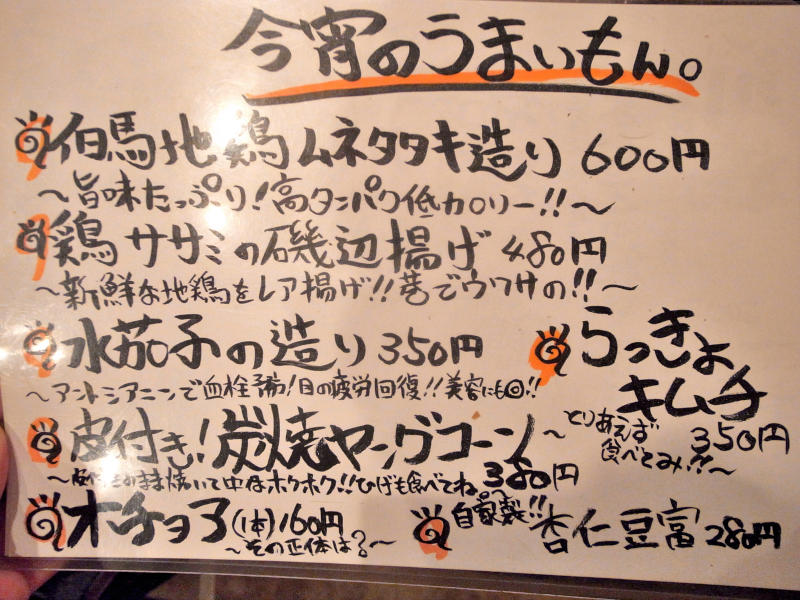 今宵のうまいもん。
但馬地鶏ムネタタキ造り 600円
〜旨味たっぷり!高タンパク低カロリー!!〜
鶏ササミの磯辺揚げ 480円
〜新鮮な地鶏をレア揚げ!!巷でウワサの!!〜
水茄子の造り 350円
〜アントシアニンで血栓予防!目の疲労回復!!美容にも◎!!
らっきょ
キムチ
350円
〜とりあえず
食べてみ!!〜
皮付き!炭焼ヤングコーン
〜皮付きのまま焼いて中はホクホク!!ひげも食べてね。〜
380円
オチョコ(1本)160円
〜その正体は?〜
自家製!!
杏仁豆富 280円